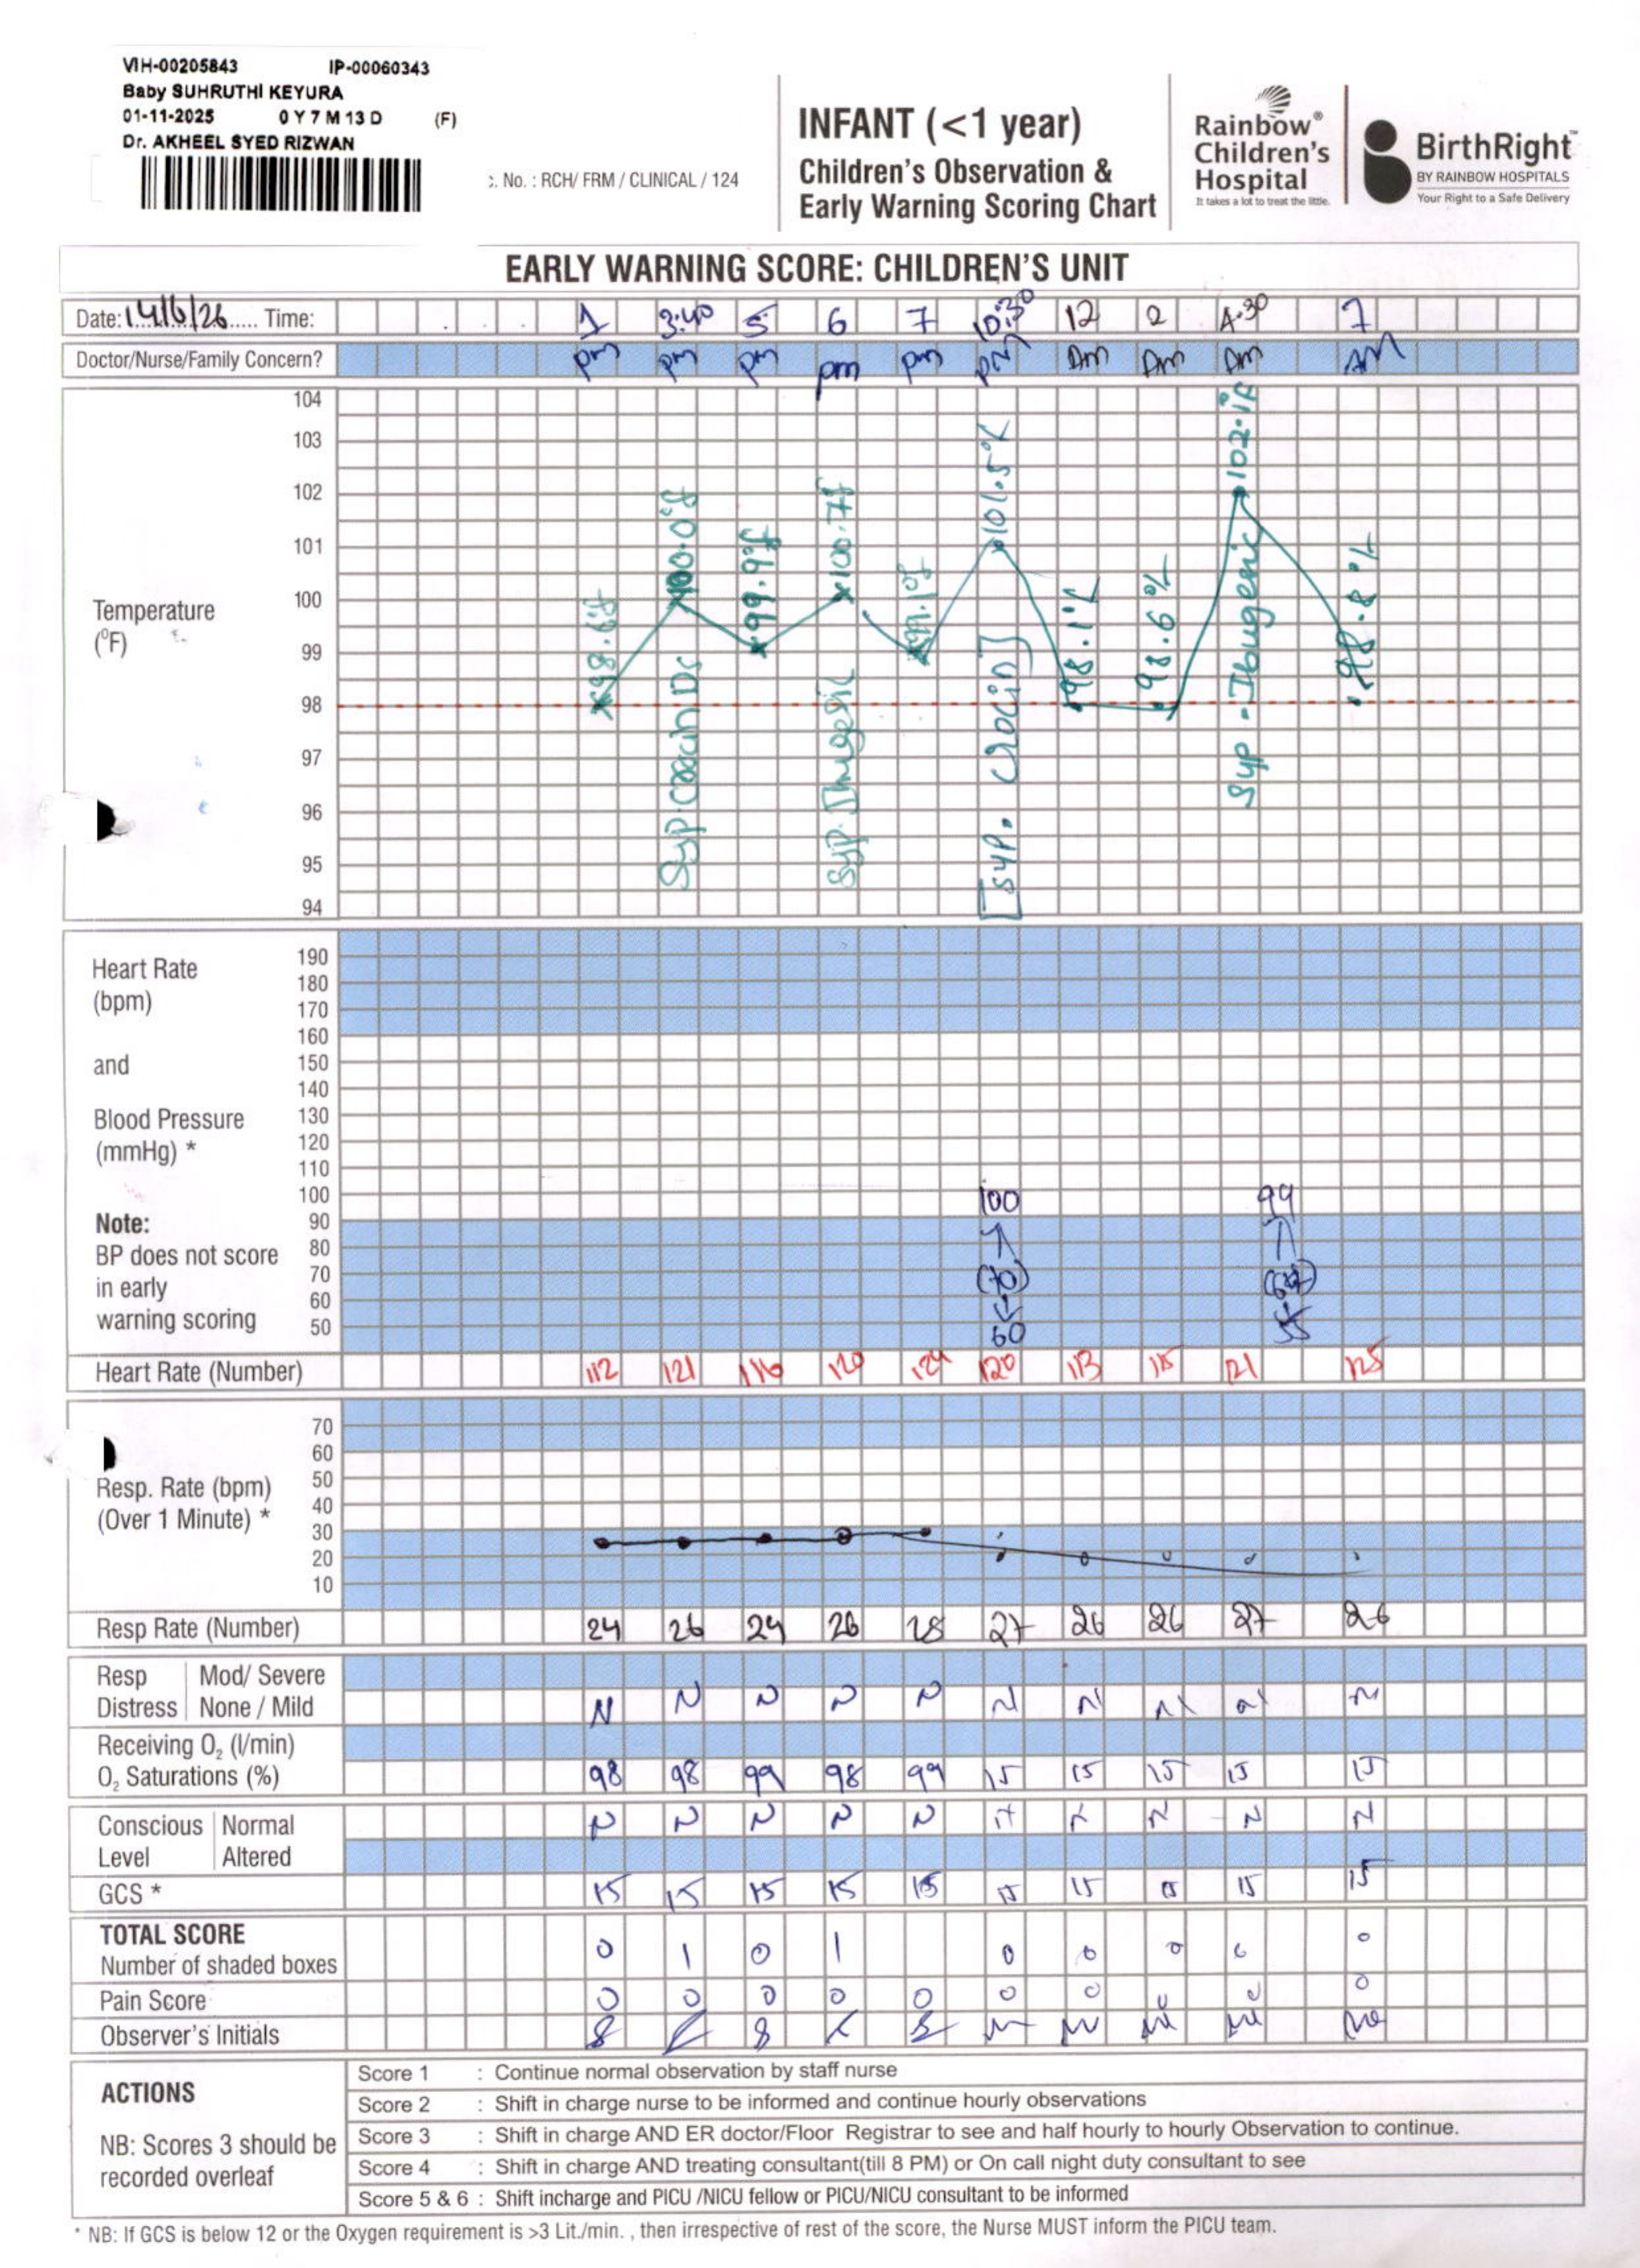 VIH-00205843 IP-00060343
Baby SUHRUTHI KEYURA
01-11-2025 0 Y 7 M 13 D (F)
Dr. AKHEEL SYED RIZWAN
. No. : RCH/ FRM / CLINICAL / 124
INFANT (<1 year)
Children's Observation &
Early Warning Scoring Chart
Rainbow®
Children's
Hospital
It takes a lot to treat the little.
BirthRight™
BY RAINBOW HOSPITALS
Your Right to a Safe Delivery
EARLY WARNING SCORE: CHILDREN'S UNIT
Date: 14/6/26 Time: 1 3:40 5 6 7 10:30 12 2 4:30 7
Doctor/Nurse/Family Concern? pm pm pm pm pm pm Am Am Am AM
Temperature
(°F)
104
103
102
101
100
99
98
97
96
95
94
98.6°f
100.0°f
99.9°f
100.7f
99.1°f
101.5°f
98.1°f
98.6°f
102.1f
98.8°f
Syp DS
Syp.
[Syp. Crocin]
Syp - Ibugesic
Heart Rate
(bpm)
and
Blood Pressure
(mmHg) *
Note:
BP does not score
in early
warning scoring
190
180
170
160
150
140
130
120
110
100
90
80
70
60
50
100
(70)
60
99
55
Heart Rate (Number) 112 121 116 120 124 120 113 115 121 125
Resp. Rate (bpm)
(Over 1 Minute) *
70
60
50
40
30
20
10
Resp Rate (Number) 24 26 24 26 28 27 26 26 27 26
Resp Distress
Mod/ Severe
None / Mild N N N N N N N N N N
Receiving O₂ (l/min)
O₂ Saturations (%) 98 98 99 98 99 15 15 15 15 15
Conscious Level
Normal N N N N N N N N N N
Altered
GCS * 15 15 15 15 15 15 15 15 15 15
TOTAL SCORE
Number of shaded boxes 0 1 0 1 0 0 0 0 0
Pain Score 0 0 0 0 0 0 0 0 0 0
Observer's Initials
ACTIONS
NB: Scores 3 should be
recorded overleaf
Score 1 : Continue normal observation by staff nurse
Score 2 : Shift in charge nurse to be informed and continue hourly observations
Score 3 : Shift in charge AND ER doctor/Floor Registrar to see and half hourly to hourly Observation to continue.
Score 4 : Shift in charge AND treating consultant(till 8 PM) or On call night duty consultant to see
Score 5 & 6 : Shift incharge and PICU /NICU fellow or PICU/NICU consultant to be informed
* NB: If GCS is below 12 or the Oxygen requirement is >3 Lit./min. , then irrespective of rest of the score, the Nurse MUST inform the PICU team.